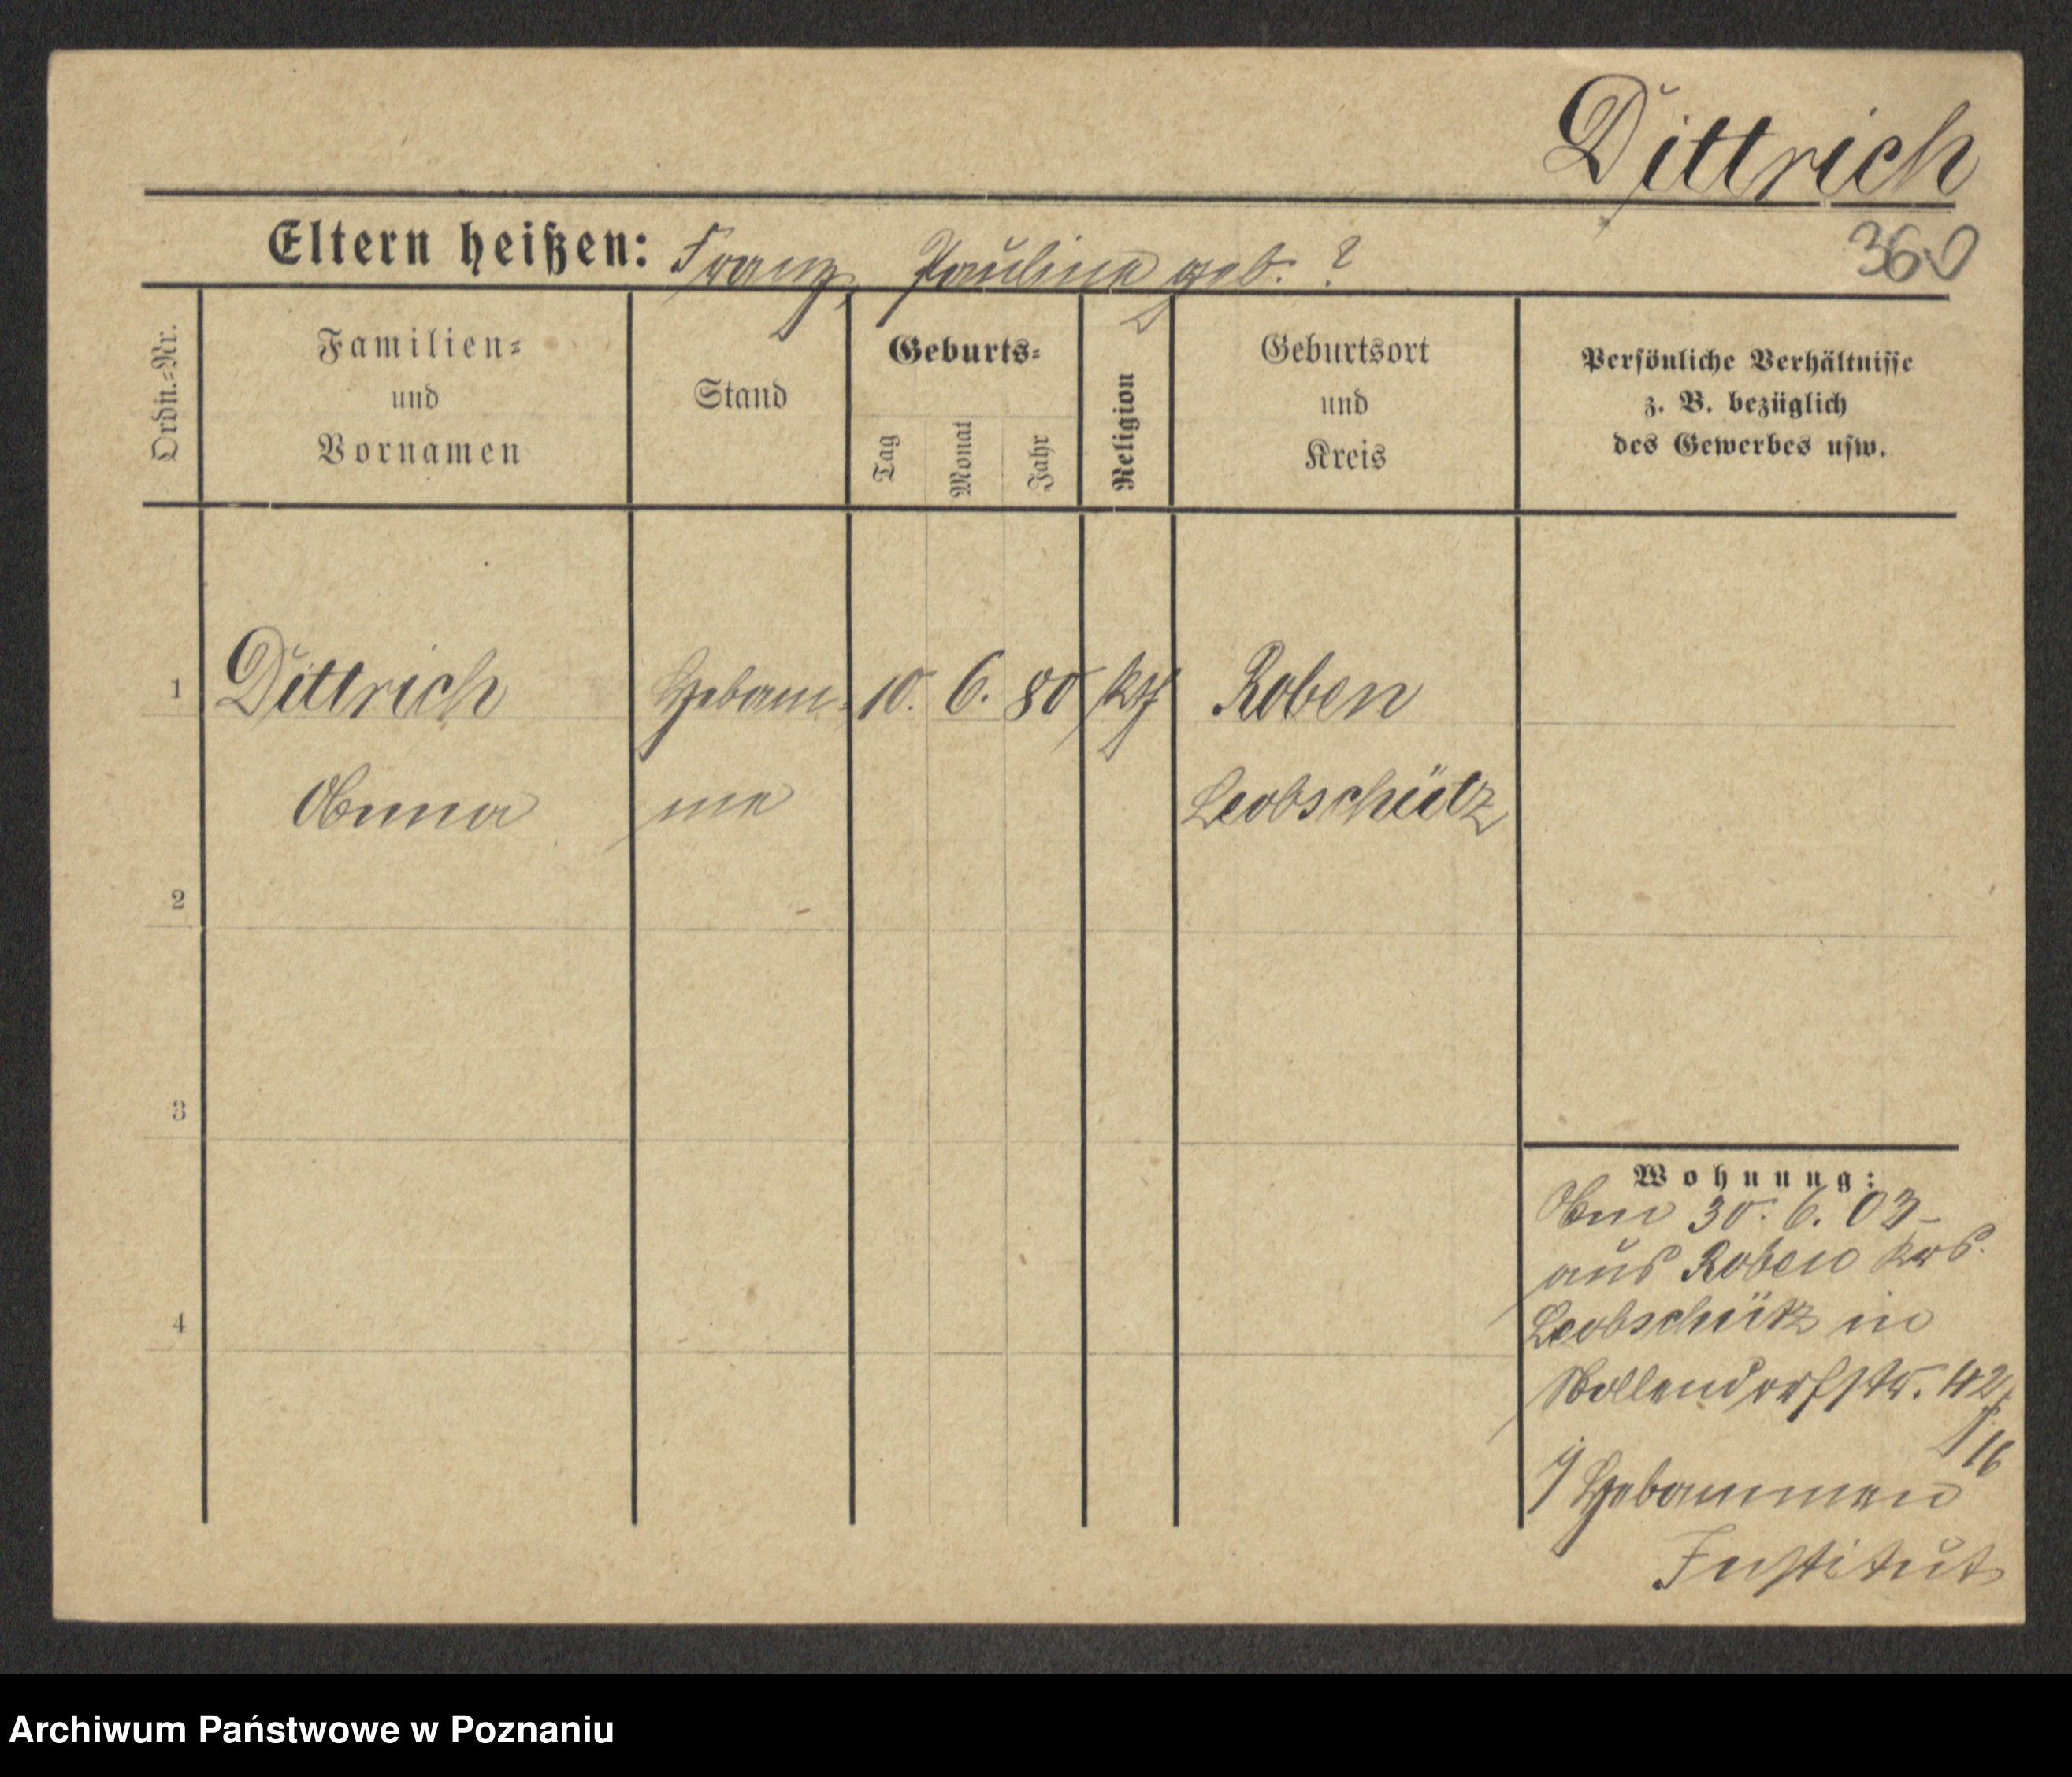 Dittrich
360
Eltern heißen: Franz, Pauline geb. ?
Ordn.=Nr.
Familien=
und
Vornamen
Stand
Geburts=
Tag
Monat
Jahr
Religion
Geburtsort
und
Kreis
Persönliche Verhältnisse
z. B. bezüglich
des Gewerbes usw.
1 Dittrich Hebam= 10. 6. 80 kth Roben
Anna me Leobschütz
2
3
4
Wohnung:
Am 30. 6. 03
aus Roben Krs.
Leobschütz in
Nollendorfstr. 42/
16
Hebammen
Institut
Archiwum Państwowe w Poznaniu